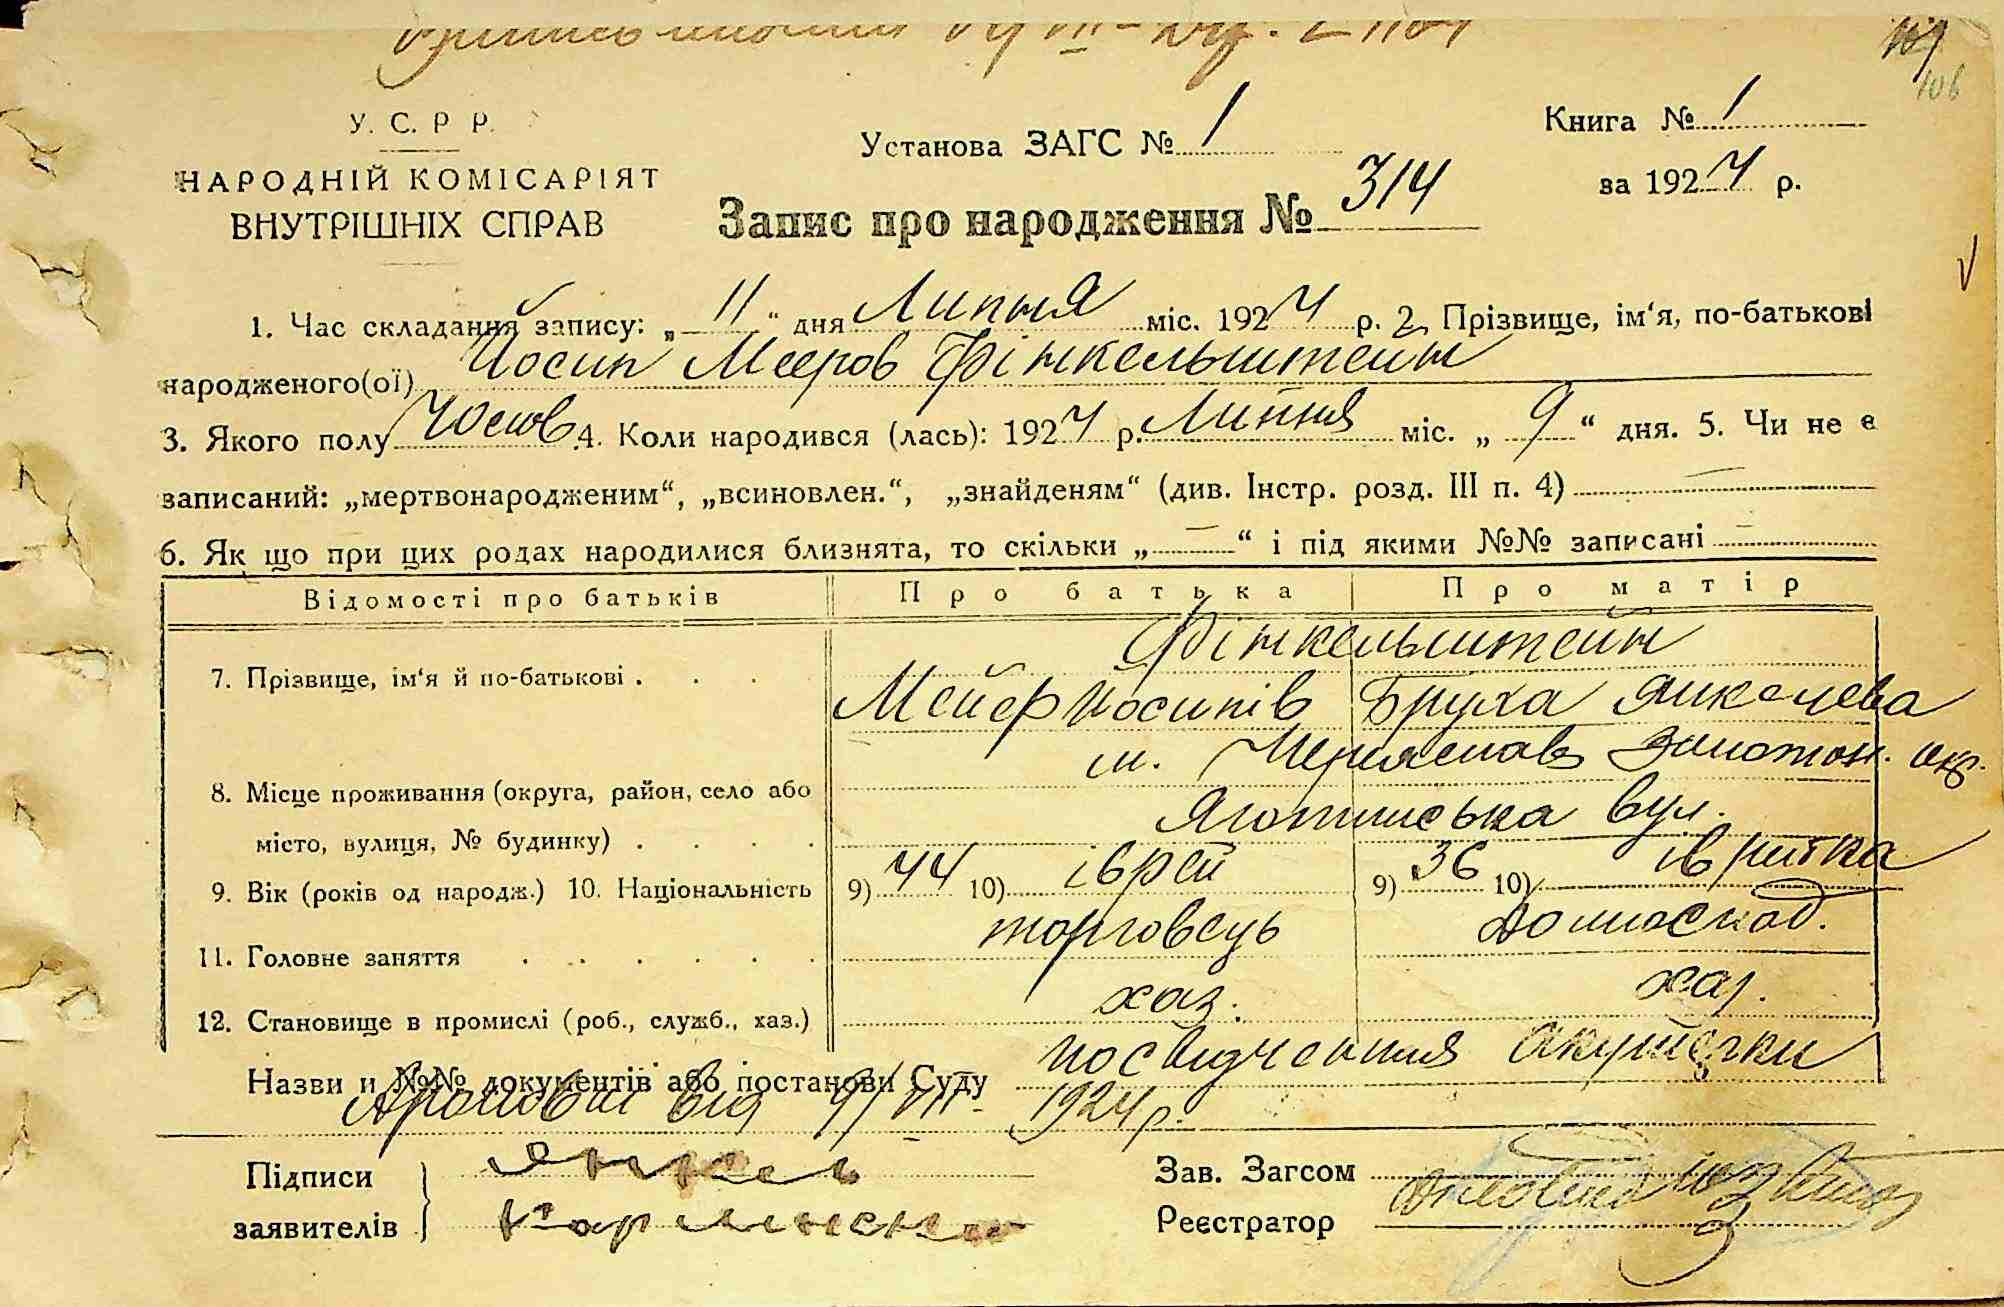 109
106
У. С. Р Р.
НАРОДНІЙ КОМІСАРІЯТ
ВНУТРІШНІХ СПРАВ
Установа ЗАГС № 1
Книга № 1
за 1924 р.
Запис про народження № 314
1. Час складання запису: „11“ дня Липня міс. 1924 р. 2. Прізвище, ім‘я, по-батькові
народженого(ої) Йосип Мееров Фінкельштейн
3. Якого полу Чолов 4. Коли народився (лась): 1924 р. Липня міс. „ 9 “ дня. 5. Чи не є
записаний: „мертвонародженим“, „всиновлен.“, „знайденям“ (див. Інстр. розд. III п. 4) —
6. Як що при цих родах народилися близнята, то скільки „ — “ і під якими №№ записані —
Відомості про батьків Про батька Про матір
Фінкельштейн
7. Прізвище, ім‘я й по-батькові . . . . Мейер Йосипів Бруха Янкелева
м. Переяслав Золотон. окр.
8. Місце проживання (округа, район, село або
місто, вулиця, № будинку) . . . . Яготинська вул.
9. Вік (років од народж.) 10. Національність 9) 44 10) іврей 9) 36 10) івритка
11. Головне заняття . . . . . . торговець домоскод.
12. Становище в промислі (роб., служб., хаз.) хаз. хаз.
Назви и №№ документів або постанови Суду посвідчення акушерки
від 9/VII- 1924 р.
Підписи
заявителів
Янкель
Зав. Загсом
Реєстратор